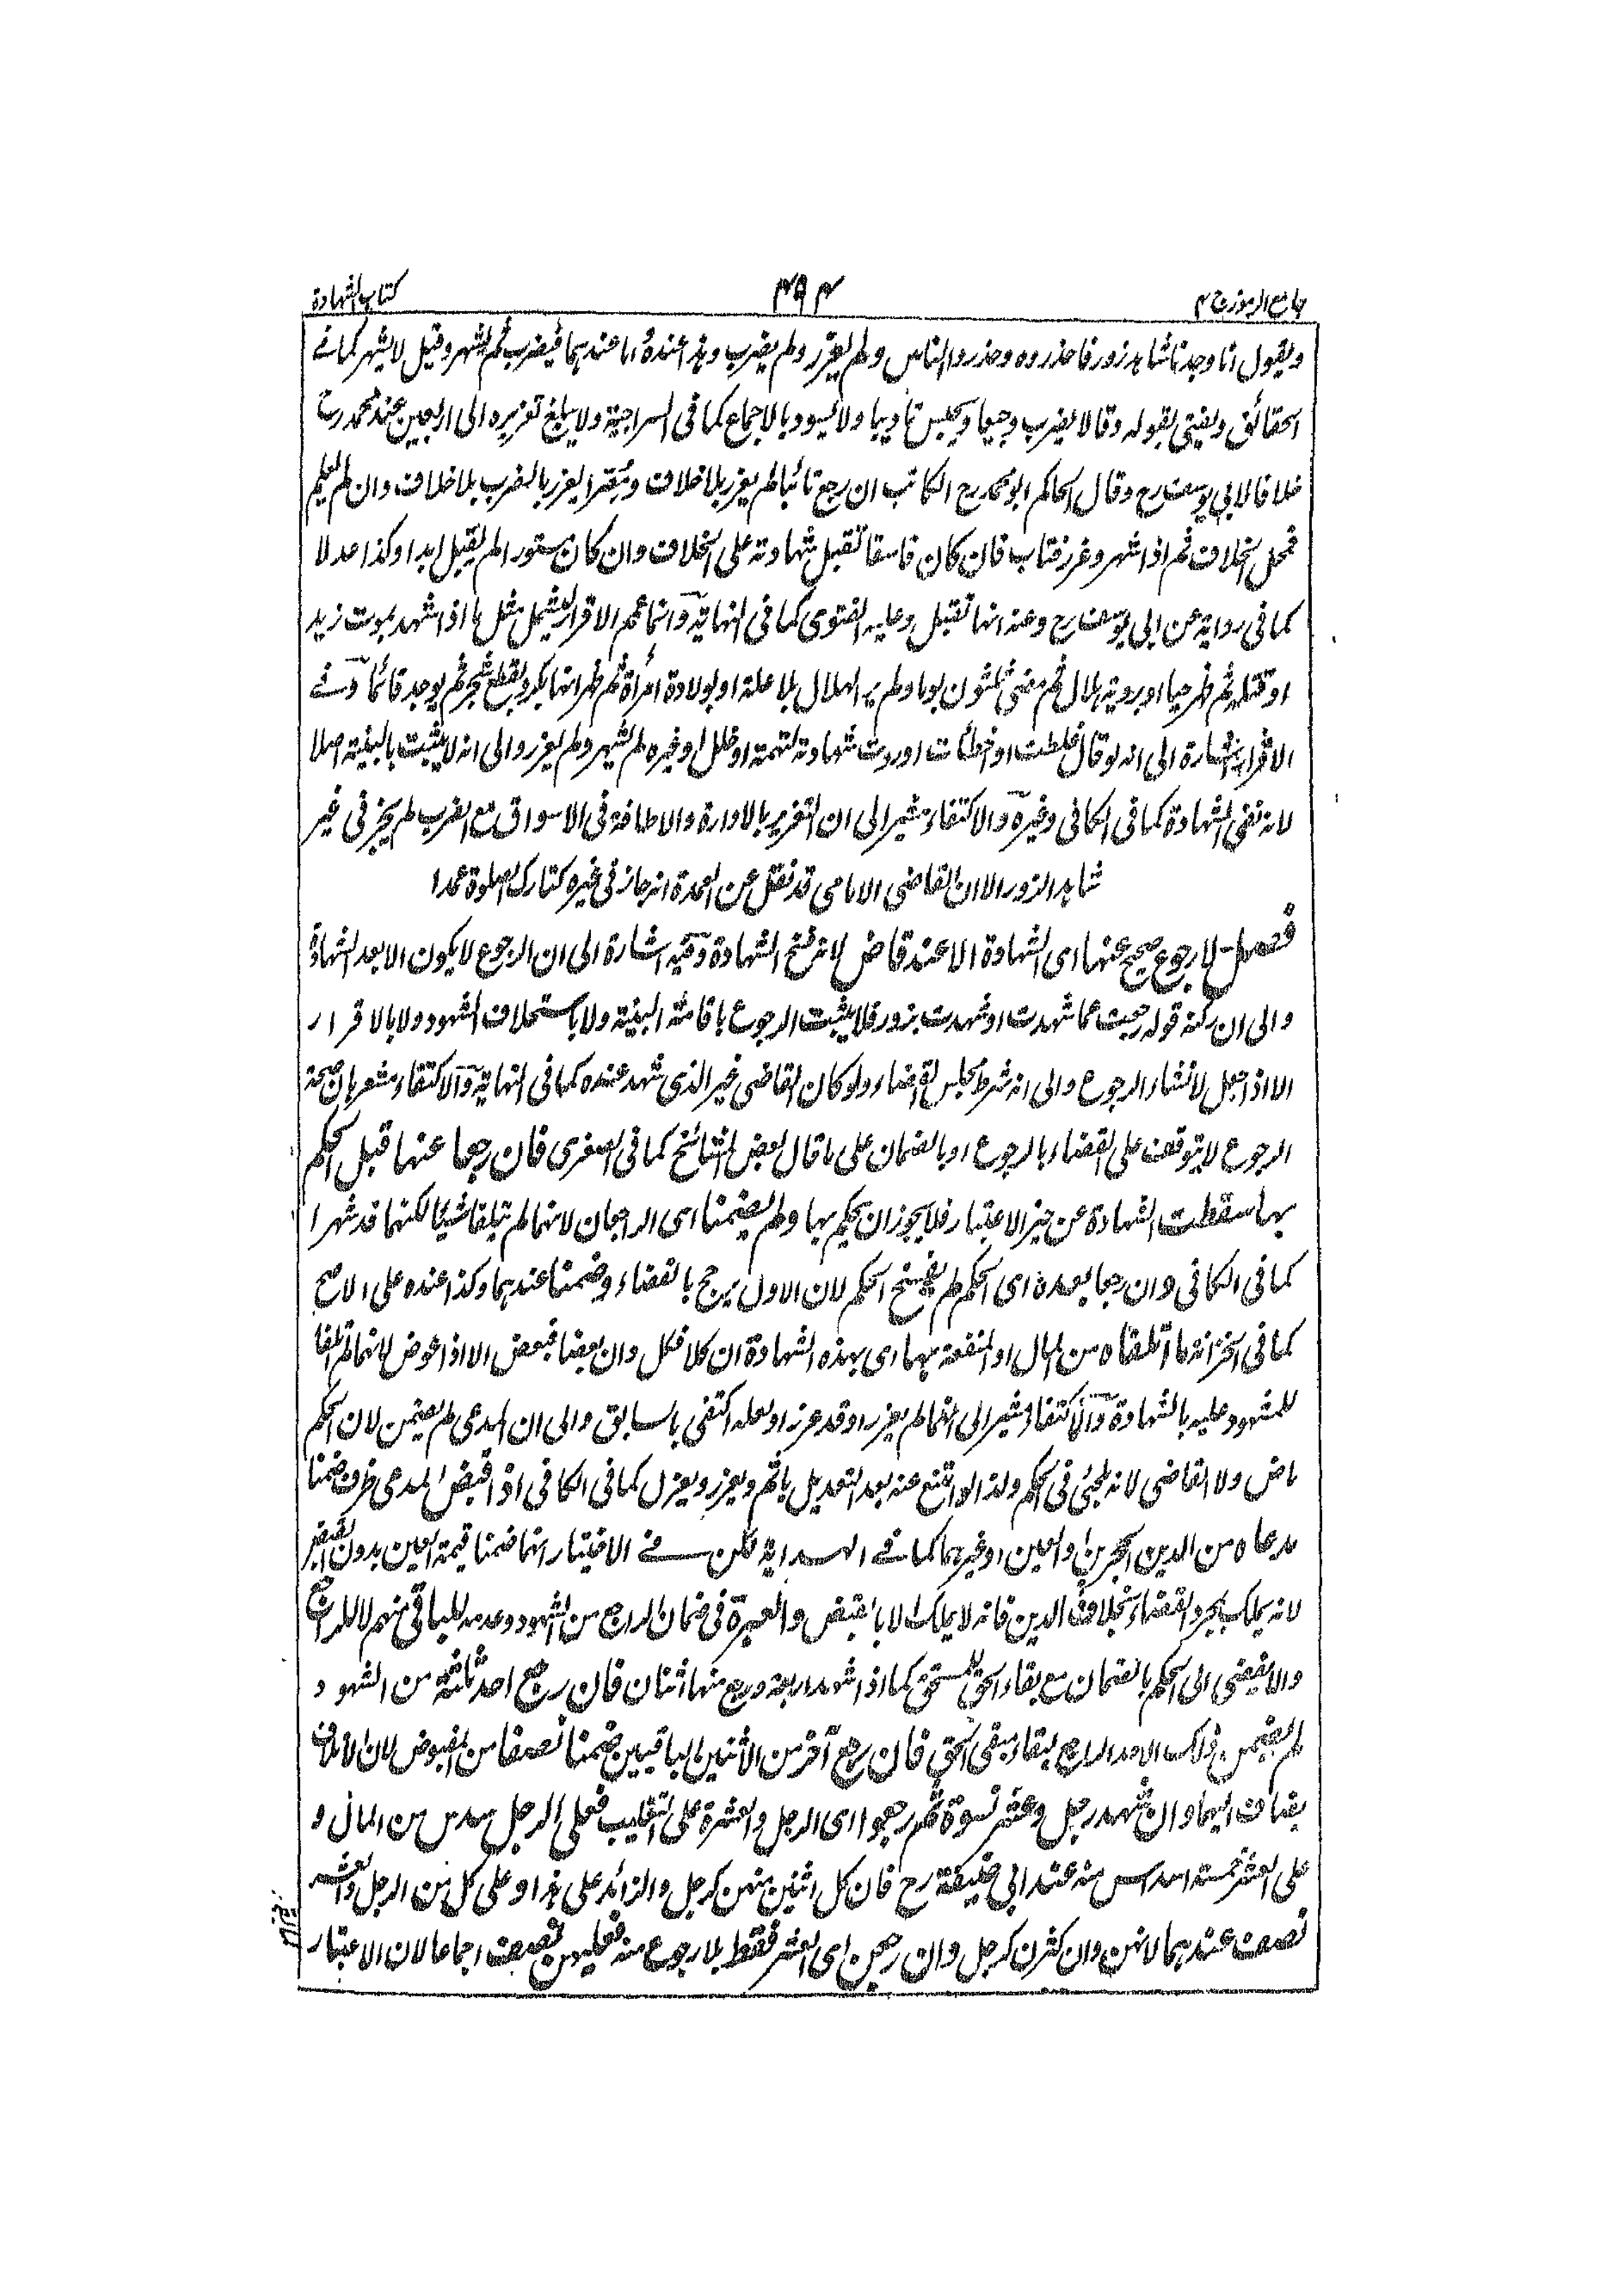 جامع الرموز ج ٢
٤٩٤
كتاب الشهادة
ويقول انا وجدنا شاهد زور فاحذروه وحذروا الناس ولم يعزر ولم يضرب وهذا عنده واما عندهما فيضرب ثم يشهر وقيل لا يشهر كما في
الحقائق ويفتى بقوله وقالا يضرب وجيعا ويحبس تاديبا ولا يسود بالاجماع كما في السراجية ولا يبلغ تعزيره الى اربعين عند محمد رح
خلافا لابي يوسف رح وقال الحاكم ابو محمد رح الكاتب ان رجع تائبا لم يعزر بلا خلاف ومصرا يعزر بالضرب بلا خلاف وان لم يعلم
فمحل الخلاف ثم اذا شهر وعزر فتاب فان كان فاسقا تقبل شهادته على الخلاف وان كان مستورا لم يقبل ابدا وكذا عدلا
كما في رواية عن ابي يوسف رح وعنه انها تقبل وعليه الفتوى كما في النهاية وانما عمم الاقرار ليشمل مثل ما اذا شهد بموت زيد
او قتله ثم ظهر حيا او بروية هلال ثم مضى ثلثون يوما ولم ير الهلال بلا علة او بولادة امرأة ثم ظهر انها بكر وبقطع شجر ثم يوجد قائما وفي
الاقرار اشارة الى انه لو قال غلطت او اخطأت او ردت شهادته لتهمة او خلل او غيره لم يشهر ولم يعزر والى انه لا يثبت بالبينة اصلا
لانه نفى الشهادة كما في الكافي وغيره والاكتفاء مشير الى ان التعزير بالادارة والاطافة في الاسواق مع الضرب لم يجز في غير
شاهد الزور الا ان القاضي الامامي قد نقل عن العمدة انه جاز في غيره كتارك الصلوة عمدا
فصل لا رجوع صحيح عنها اى الشهادة الا عند قاض لانه فسخ الشهادة وفيه اشارة الى ان الرجوع لا يكون الا بعد الشهادة
والى ان ركنه قوله رجعت عما شهدت او شهدت بزور فلا يثبت الرجوع باقامة البينة ولا باستحلاف الشهود ولا بالاقرار
الا اذا جعل لانشاء الرجوع والى انه شرط مجلس القضاء ولو كان القاضي غير الذى شهد عنده كما في النهاية والاكتفاء مشعر بان صحة
الرجوع لا يتوقف على القضاء بالرجوع او بالضمان على ما قال بعض المشائخ كما في الصغرى فان رجعا عنها قبل الحكم
بها سقطت الشهادة عن حيز الاعتبار فلا يجوز ان يحكم بها ولم يضمنا اى الراجعان لانهما لم يتلفا شيئا لكنهما قد شهرا
كما في الكافي وان رجعا بعده اى الحكم لم يفسخ الحكم لان الاول يرجح بالقضاء وضمنا عندهما وكذا عنده على الاصح
كما في الخزانة ما اتلفاه من المال او المنفعة بهما اى بهذه الشهادة ان كلا فكل وان بعضا فبعض الا اذا عوض لانهما لم اتلفا
للمشهود عليه بالشهادة والاكتفاء مشير الى انهما لم يعزرا وقد عزرا ولعله اكتفى بالسابق والى ان المدعى لم يضمن لان الحكم
ماض ولا القاضي لانه ملجئ في الحكم ولذا لو امتنع عنه بعد التعديل ياثم ويعزر ويعزل كما في الكافي اذا قبض المدعى ظرف ضمنا
مدعاه من الدين الحجرين والعين او غيرهما كما في الهداية لكن في الاختيار انهما ضمنا قيمة العين بدون القبض
لانه يملك بمجرد القضاء بخلاف الدين فانه لا يملك الا بالقبض والعبرة في ضمان الراجع من الشهود وعدمه للباقي منهم لا للراجع
والا يفضى الى الحكم بالضمان مع بقاء الحق للمستحق كما اذا شهد اربعة ورجع منها اثنان فان رجع احد ثلثة من الشهود
لم يضمن ذلك الاحد الراجع لبقاء من يبقى الحق فان رجع آخر من الاثنين الباقيين ضمنا نصفا من المقبوض لان الاتلاف
يضاف اليهما وان شهد رجل وعشر نسوة ثم رجعوا اى الرجل والعشرة على التغليب فعلى الرجل سدس من المال و
على العشر خمسة اسداس منه عند ابي حنيفة رح فان كل اثنين منهن كرجل والزائد على هذا وعلى كل من الرجل والعشر
نصف عندهما لانهن وان كثرن كرجل وان رجعن اى العشر فقط بلا رجوع منه فعليهن نصف اجماعا لان الاعتبار